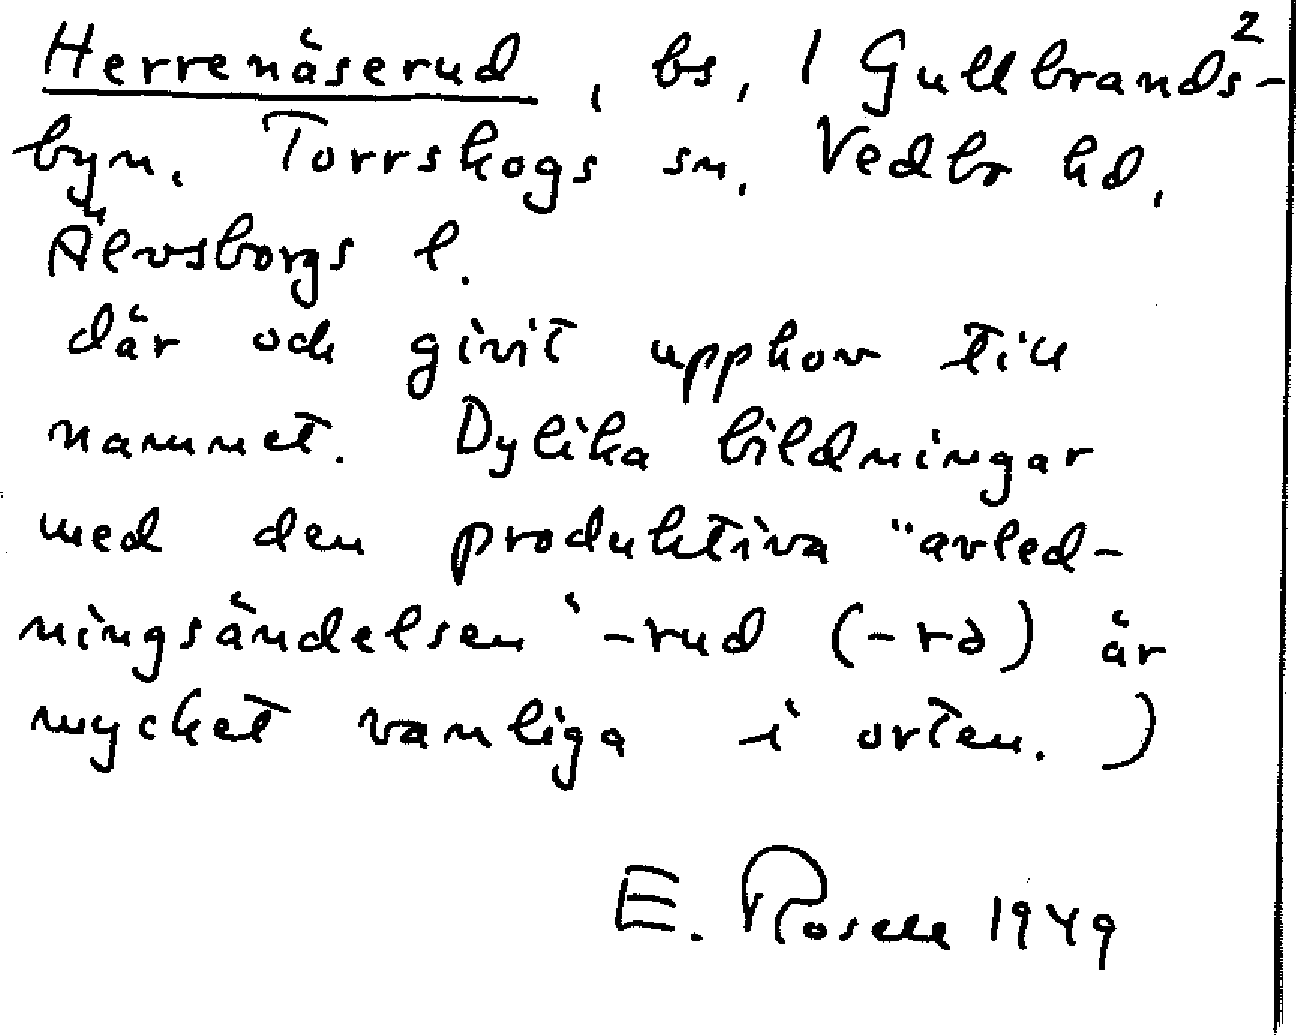 Herrenäserud, bs, 1 Gullbrands²-
byn. Torrskogs sn. Vedbo hd,
Älvsborgs l.
där och givit upphov till
namnet. Dylika bildningar
med den produktiva "avled-
ningsändelsen" -rud (-rə) är
mycket vanliga i orten. )
E. Rosell 1949